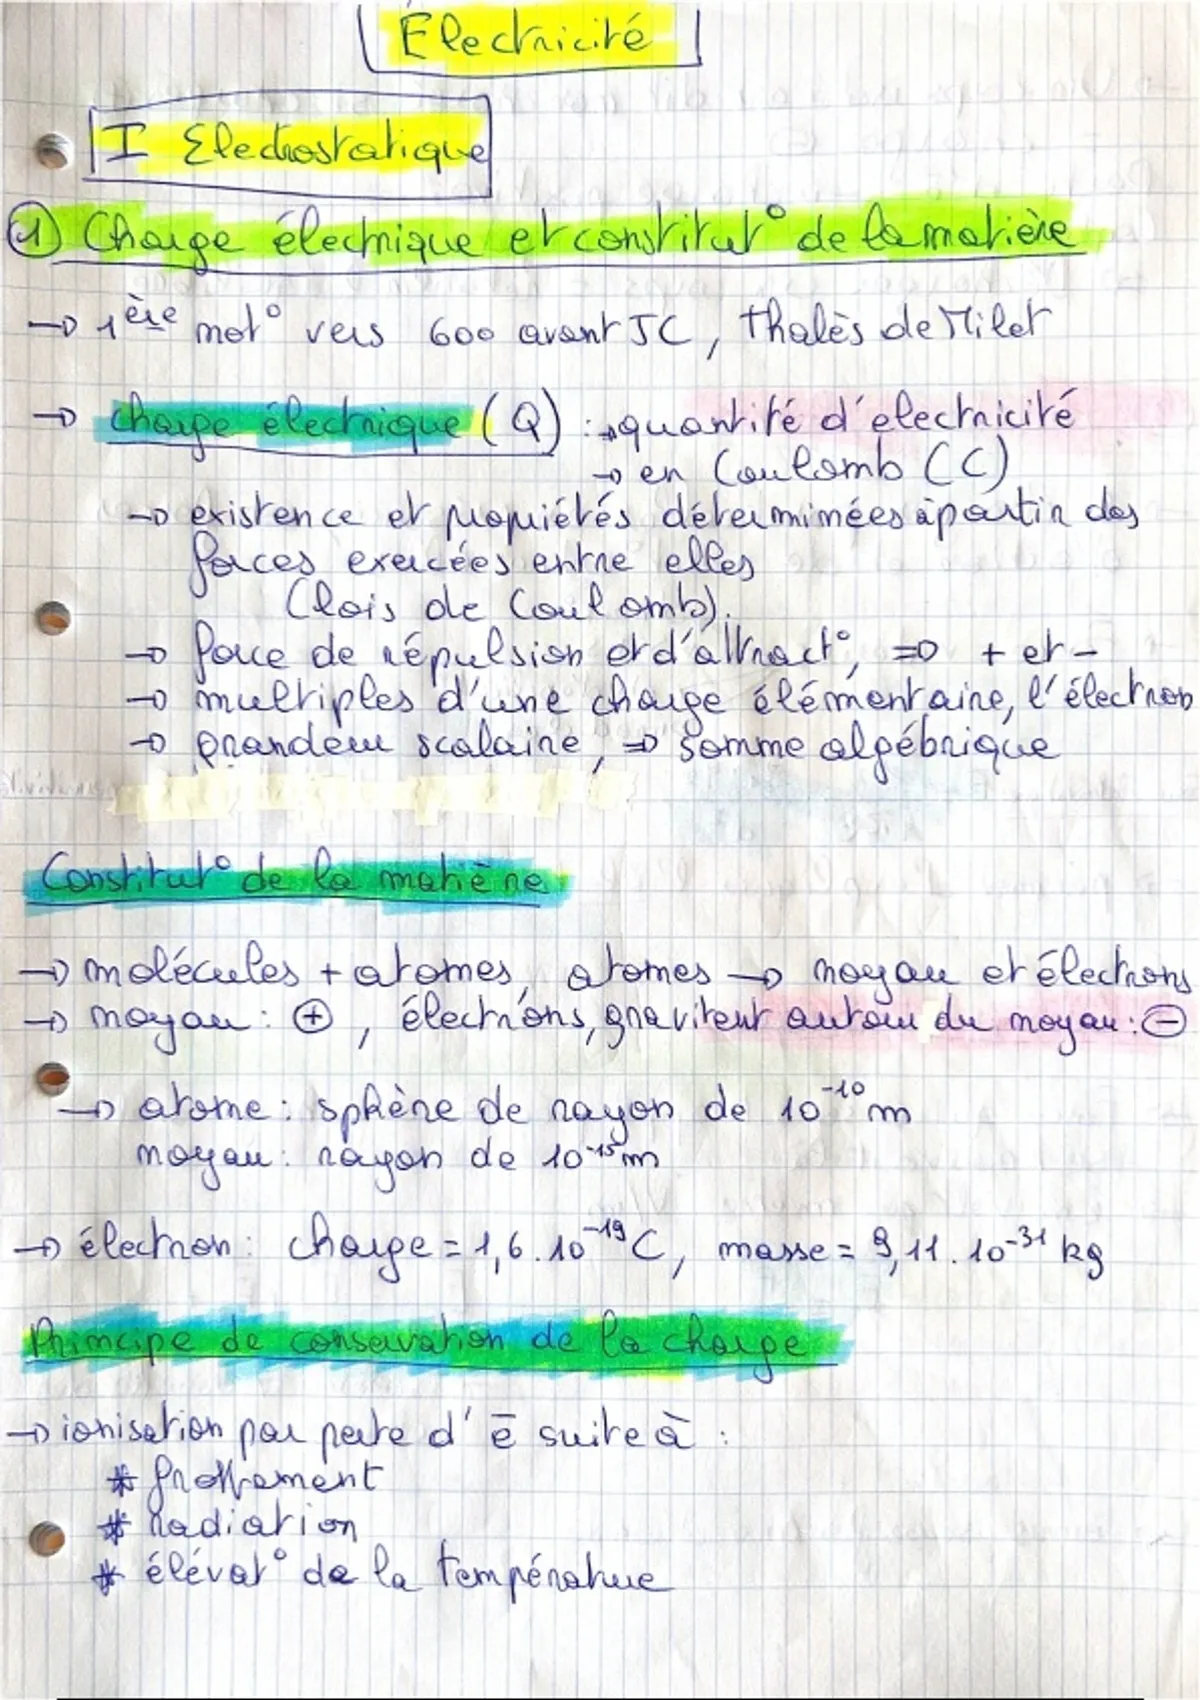 Electricité
I Electrostatique
1) Charge électrique et constitut° de la matière
→ 1ère mot° vers 600 avant JC, Thalès de Milet
→ charge électrique (Q) : → quantité d'electricité
→ en Coulomb (C)
→ existence et propriétés déterminées à partir des
forces exercées entre elles
(lois de Coulomb).
→ force de répulsion et d'attract°, ⇒ + et -
→ multiples d'une charge élémentaire, l'électron
→ grandeur scalaire, ⇒ somme algébrique
Constitut° de la matière
→ molécules + atomes, atomes → noyau et électrons
→ noyau : ⊕, électrons, gravitent autour du noyau : ⊖
→ atome : sphère de rayon de 10⁻¹⁰ m
noyau : rayon de 10⁻¹⁵ m
→ électron : charge = 1,6.10⁻¹⁹ C, masse = 9,11.10⁻³¹ kg
Principe de conservation de la charge
→ ionisation par perte d' ē suite à :
* frottement
* radiation
* élévat° de la température